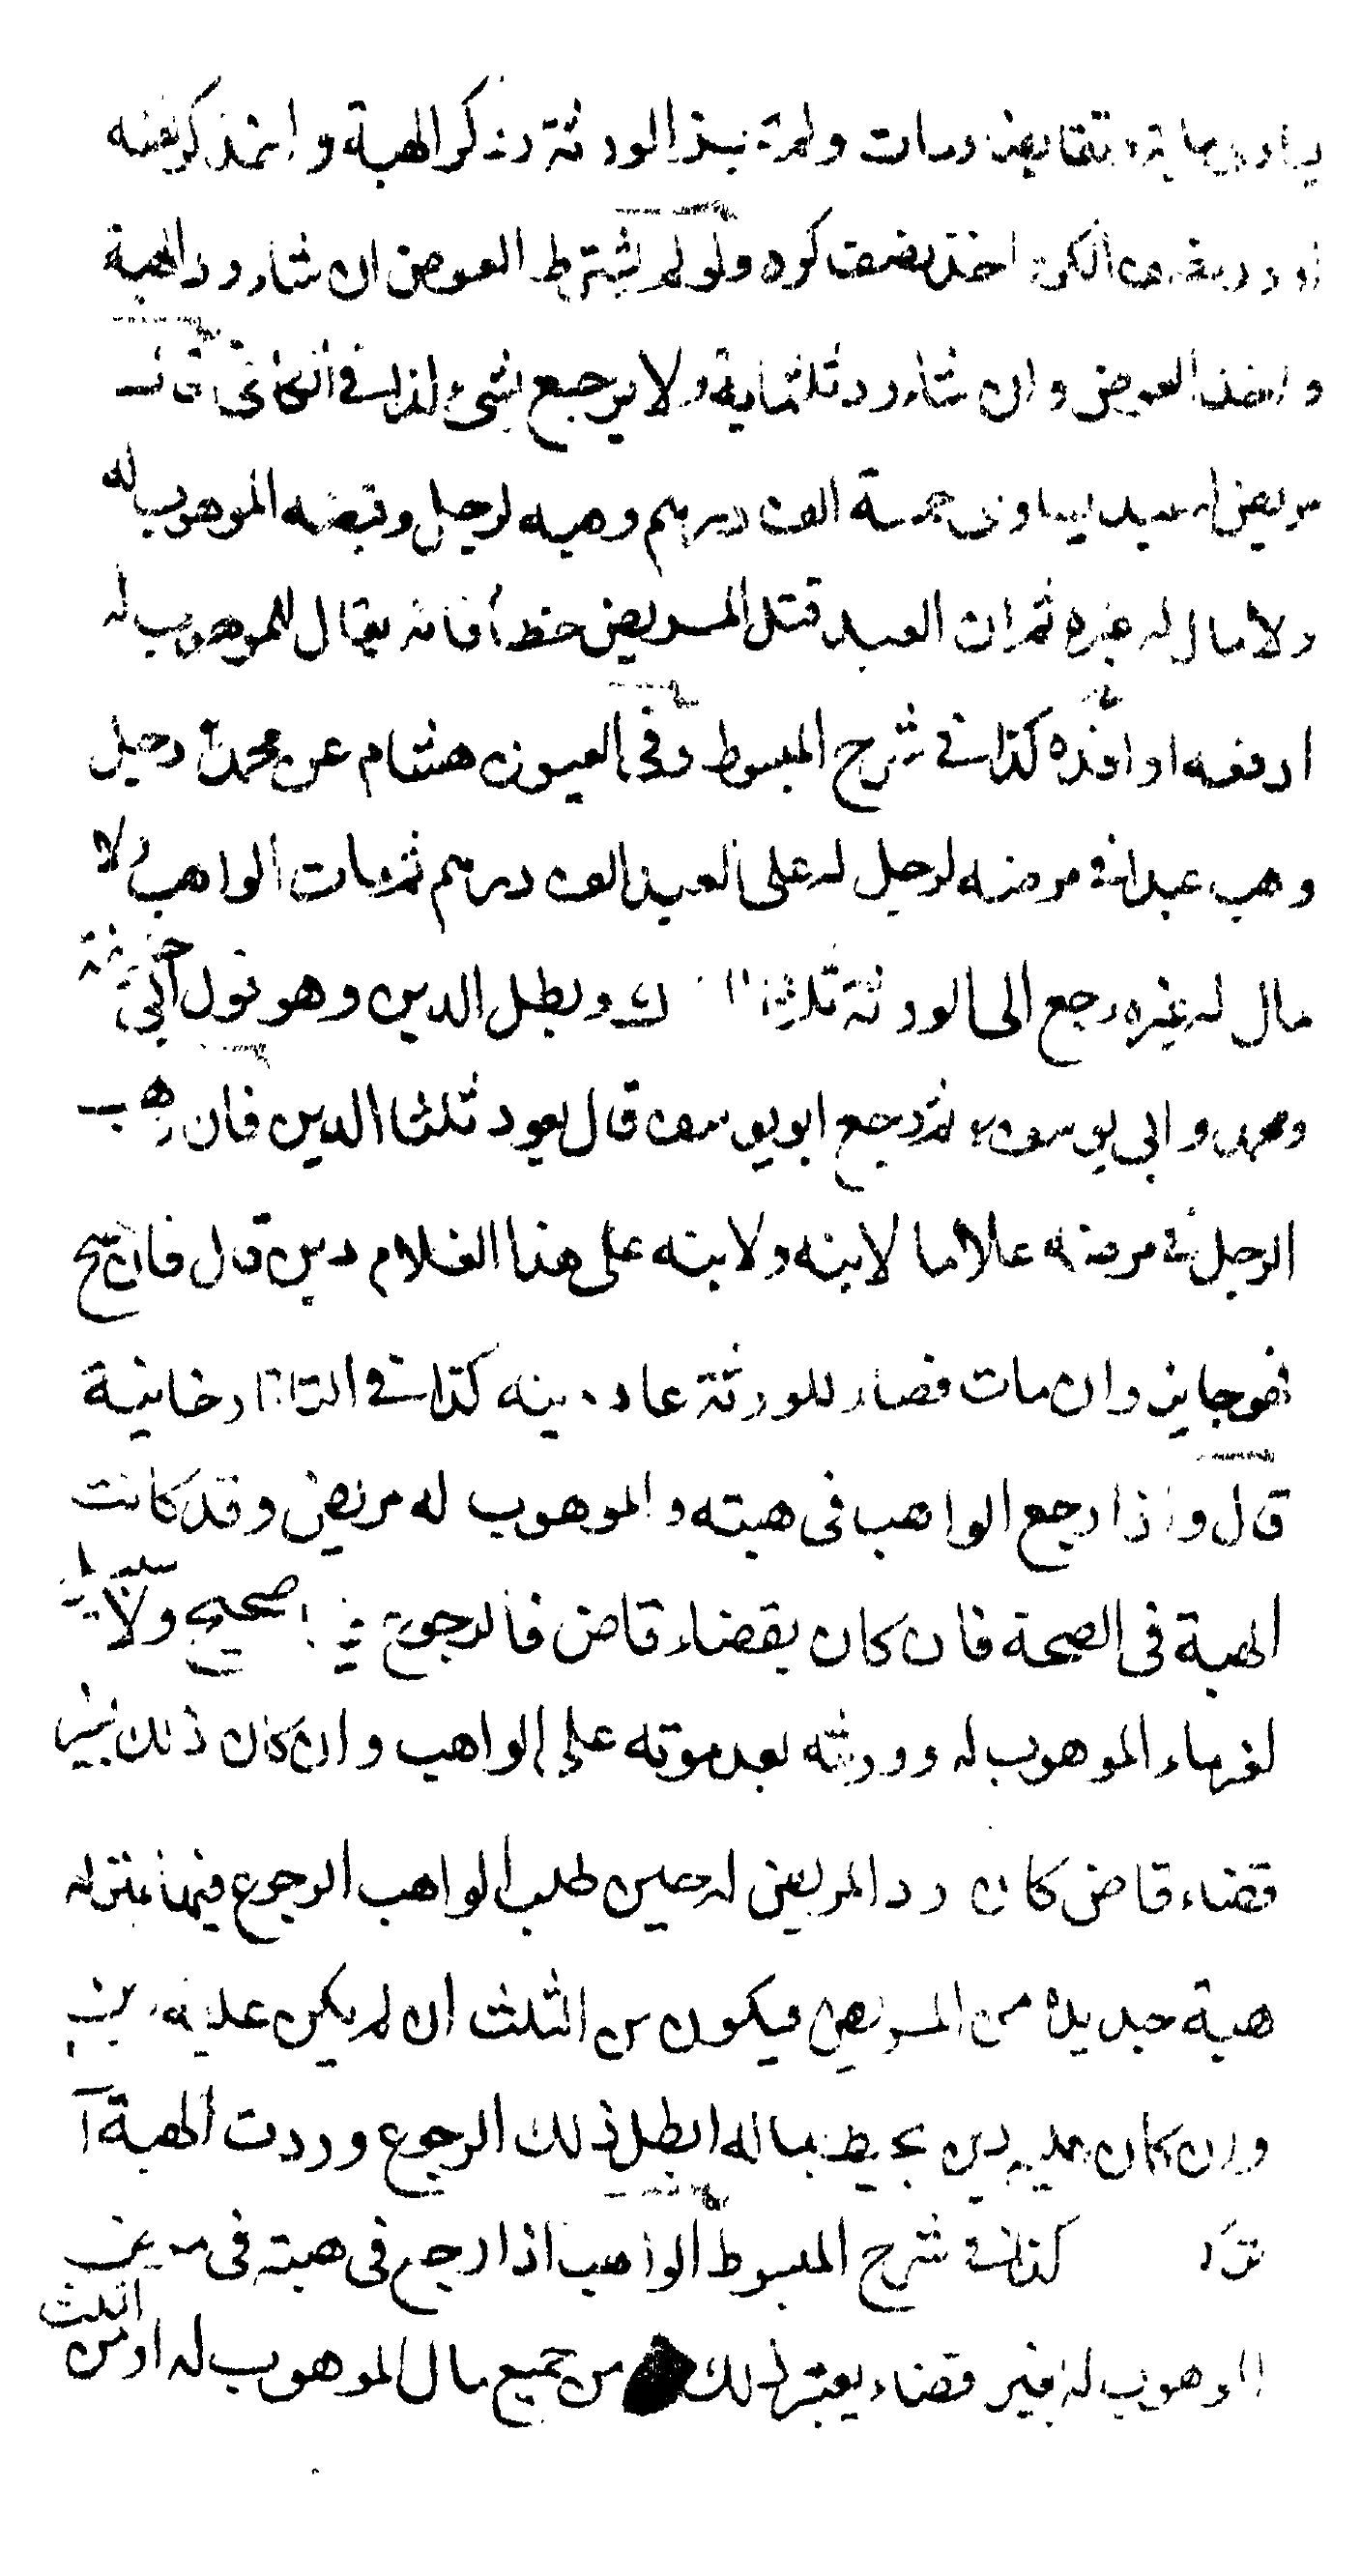 وتقابضا ومات ولم تجز الورثة رد كر الهبة واخذ كر نفسه
اخذ نصف كره ولو لم يشترط العوض ان شاء رد الهبة
واخذ العوض وان شاء رد ثلثماية ولا يرجع بشئ كذا في الكافي قال
مريض له عبد يساوى خمسة الف درهم وهبه لرجل وقبضه الموهوب له
ولا مال له غيره ثم ان العبد قتل المريض خطأ فانه يقال للموهوب له
ادفعه او افده كذا في شرح المبسوط وفي العيون هشام عن محمد رجل
وهب عبدا في مرضه لرجل له على العبد الف درهم ثم مات الواهب ولا
مال له غيره رجع الى الورثة ثلثا ويبطل الدين وهو قول ابي حنيفة
ومحمد وابي يوسف ثم رجع ابو يوسف قال يعود ثلثا الدين فان وهب
الرجل في مرضه غلاما لابنه ولابنه على هذا الغلام دين قال فان صح
فهو جايز وان مات فصار للورثة عاد دينه كذا في التتارخانية
قال واذا رجع الواهب في هبته والموهوب له مريض وقد كانت
الهبة في الصحة فان كان بقضاء قاض فالرجوع فيها صحيح ولا سبيل
لغرماء الموهوب له وورثته بعد موته على الواهب وان كان ذلك بغير
قضاء قاض كان رد المريض له حين طلب الواهب الرجوع فيها بمنزله
هبة جديدة من المريض فيكون من الثلث ان لم يكن عليه دين
وان كان عليه دين يحيط بماله ابطل ذلك الرجوع وردت الهبة
كذا في شرح المبسوط الواهب اذا رجع في هبته في مرض
الموهوب له بغير قضاء يعتبر ذلك من جميع مال الموهوب له او من
الثلث